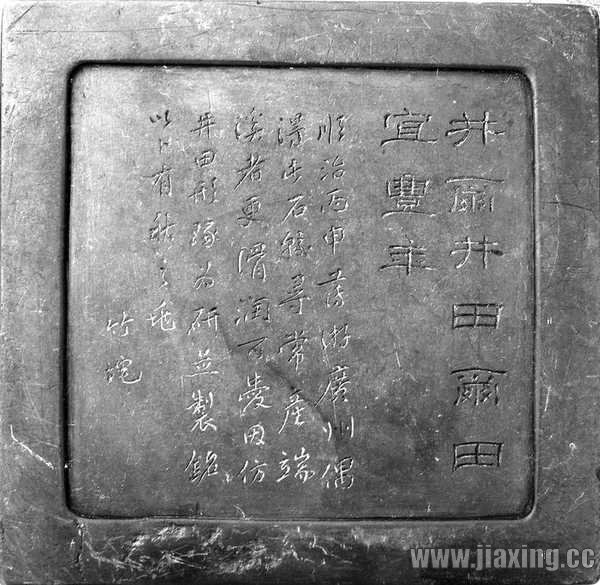 井爾井田爾田
宜豐年
順治丙申薄游廣州偶
得此石尋常產端
溪者更滑潤可愛因仿
井田形琢為研並製銘
以卜有秋之兆
竹垞
www.jiaxing.cc